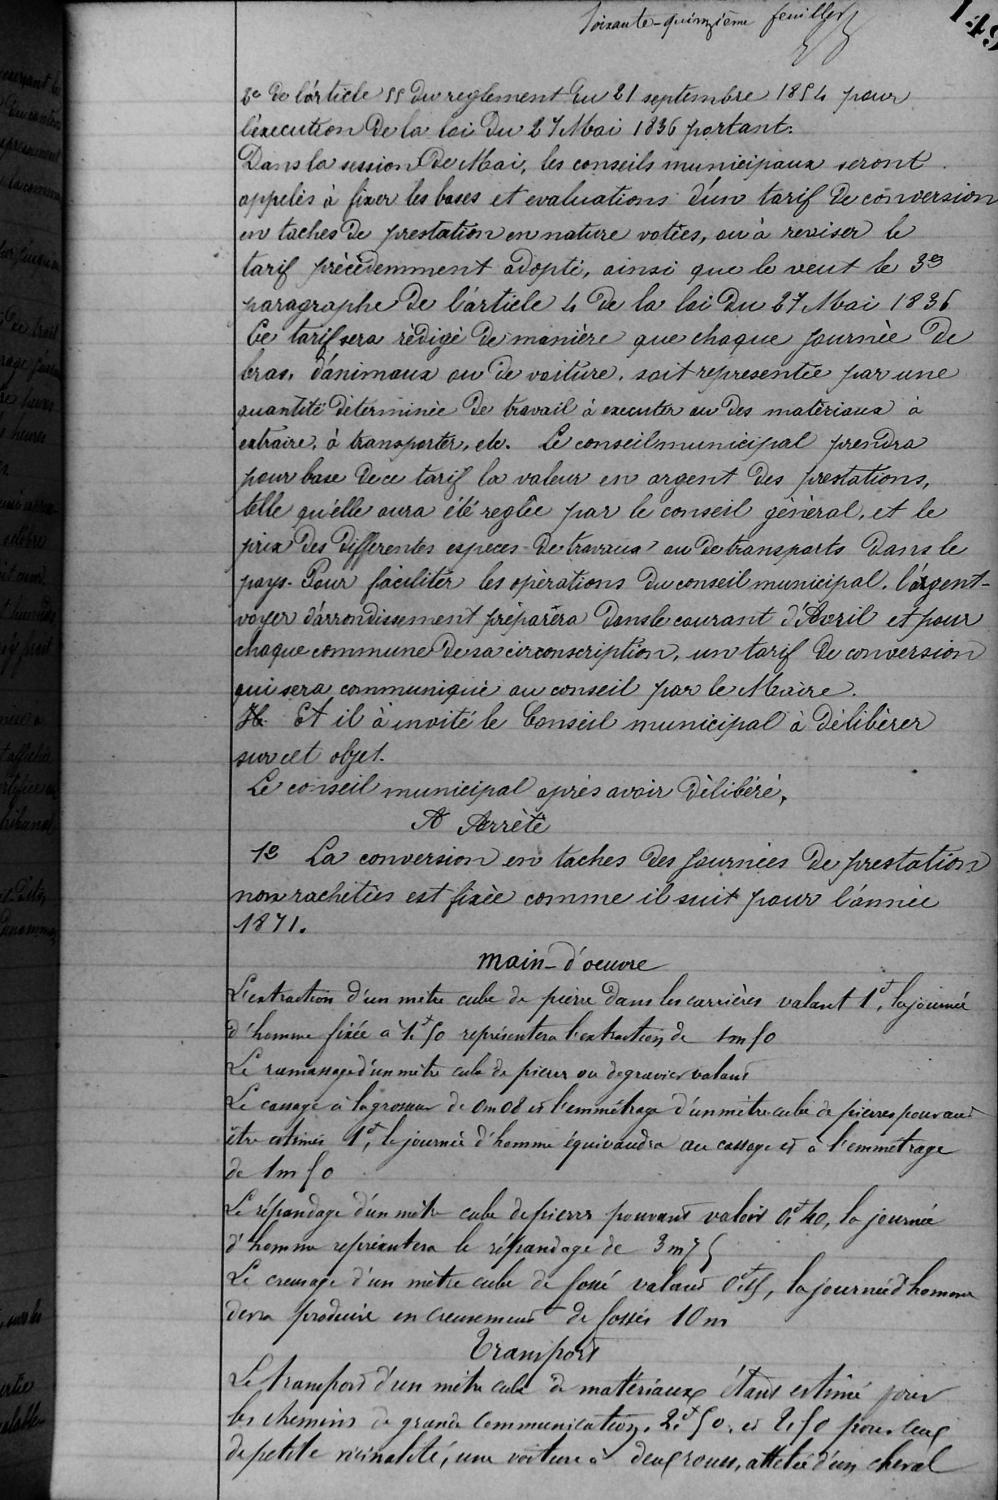 Soixante-quinzième feuillet
149
2º De l'article 55 du reglement du 21 septembre 1854 pour
l'éxecution De la loi Du 27 Mai 1836 portant.
Dans la session De Mai, les conseils municipaux seront
appelés à fixer les bases et evaluations d'un tarif De conversion
en taches De prestation en nature votées, ou à reviser le
tarif précèdemment adopté, ainsi que le veut le 3e
paragraphe De l'article 4 De la loi Du 27 Mai 1836
Ce tarif sera rédigé De manière que chaque journée De
bras, d'animaux ou De voiture, soit representée par une
quantité Déterminée De travail à executer ou Des matériaux à
extraire, à transporter, etc. Le conseil municipal prendra
pour base De ce tarif la valeur en argent Des prestations,
telle qu'elle aura été reglée par le conseil général, et le
prix Des Differentes especes De travaux ou De transports Dans le
pays. Pour faciliter les opérations Du conseil municipal, l'argent-
voyer D'arrondissement préparéra Dans le courant d'Avril et pour
chaque commune De sa circonscription, un tarif De conversion
qui sera communiqué au conseil par le Maire.
Et il à invité le Conseil municipal à Délibérer
sur cet objet.
Le conseil municipal aprés avoir Délibéré,
A Arrêté
1º La conversion en taches Des journées De prestation
non rachétées est fixée comme il suit pour l'année
1871.
main-d'oeuvre
L'extraction d'un mètre cube de pierre dans les carrières valant 1f, la journée
d'homme fixée à 1f50 représentera l'extraction de 1m50
Le ramassage d'un mètre cube de pierres ou de gravier valant
Le cassage à la grosseur de 0m08 et l'emmétrage d'un mètre cube de pierres pouvant
être estimés 1f, la journée d'homme équivaudra au cassage et à l'emmetrage
de 1m50
Le répandage d'un mètre cube de pierres pouvant valoir 0f40, la journée
d'homme représentera le répandage de 3m75
Le creusage d'un mètre cube de fossé valant 0f15, la journée d'homme
devra produire en creusement de fossés 10m
Transport
Le transport d'un mètre cube de matériaux étant estimé pour
les chemins de grande Communication, 2f50, et 2,50 pour ceux
de petite vicinalité, une voiture à deux roues, attelée d'un cheval